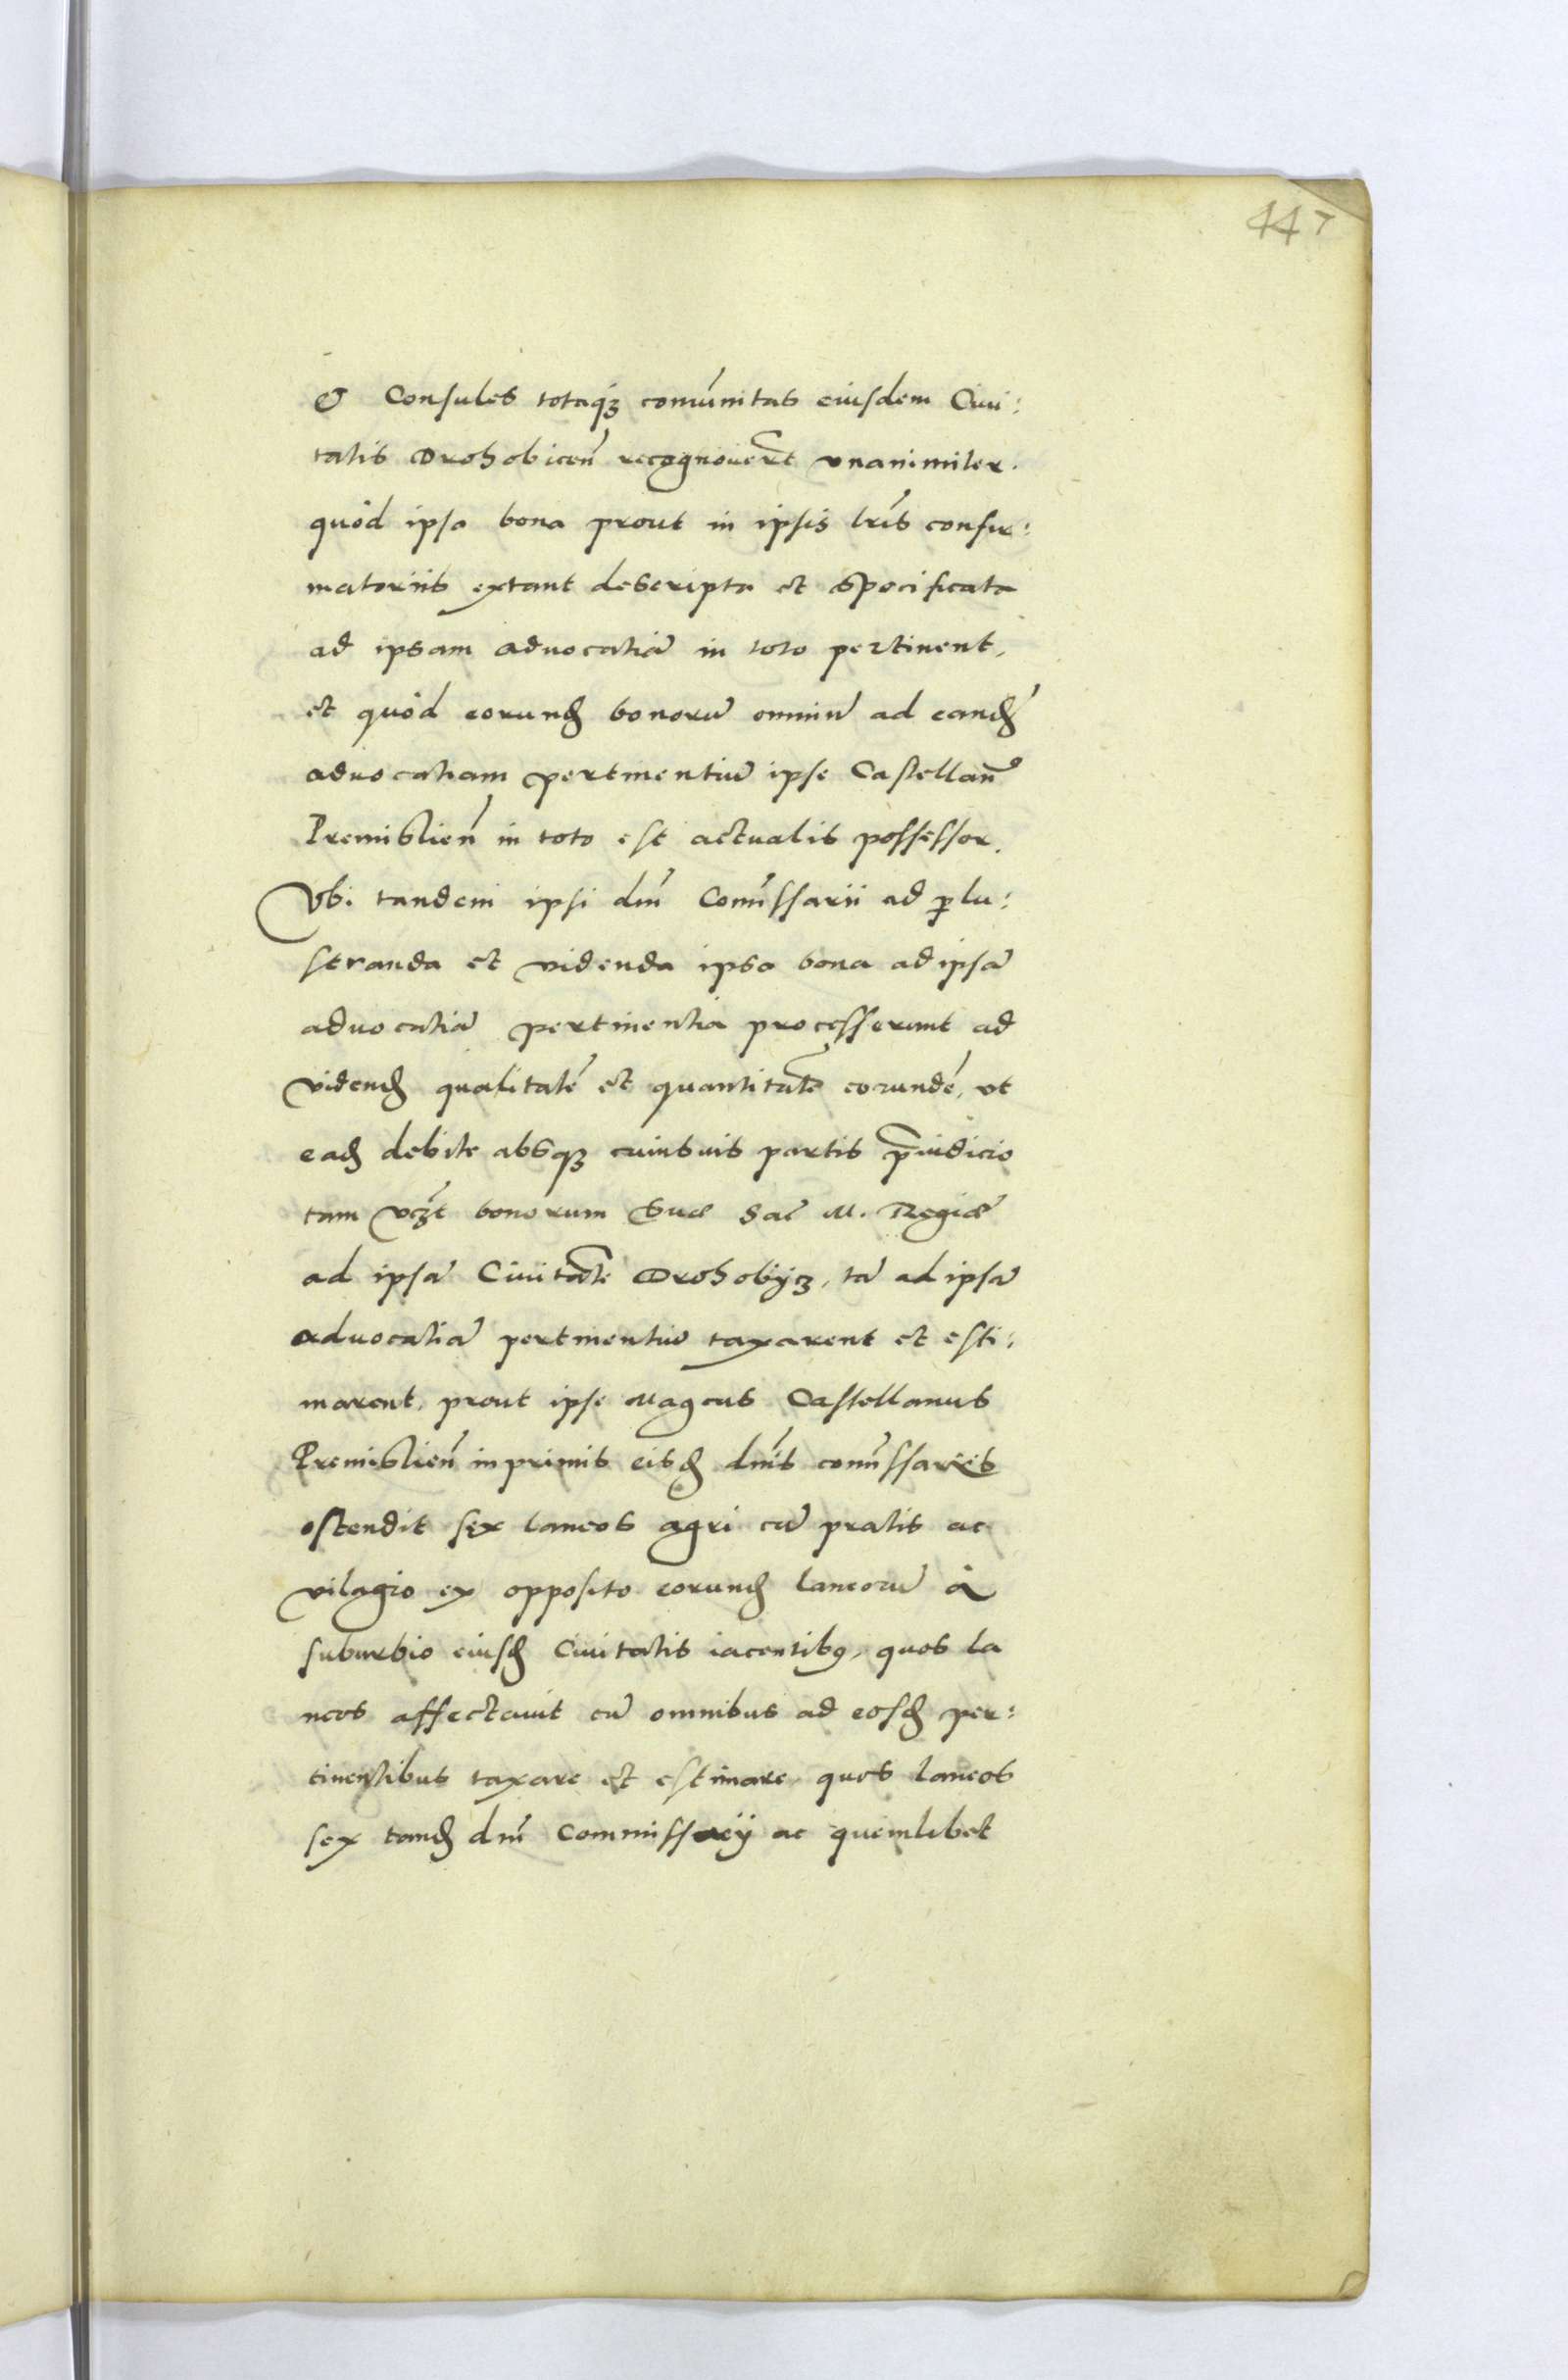 447
& Consules totaq́ꝫ comũnitas eiusdem Ciui:
tatis Drohobiceñ recognouer̃t vnanimiter.
quòd ipsa bona prout in ipsis lr̃is confir:
matoriis extant descripta et specificata
ad ipsam aduocatiã in toto pertinent,
et quòd eorund̃ bonorũ omniũ ad eand̃
aduocatiam pertinentiũ ipse Castellañ⁹
Premislieñ in toto est actualis possessor.
Vbi tandem ipsi dñi Com̃issarii ad ꝑlu:
stranda et videnda ipsa bona ad ipsã
aduocatiã pertinentia processerunt ad
videnḍ qualitatẽ et quantitatẽ eorundẽ, vt
ead̃ debite absqꝫ cuiusuis partis p̃iudicio
tam vcꝫt bonorum Suæ Sac̃ M. Regiæ
ad ipsã Ciuitatẽ Drohobÿcꝫ, tã ad ipsã
aduocatiã pertinentiũ taxarent et esti:
marent, prout ipse Magcus Castellanus
Premislieñ inprimis eisd̃ dñis com̃issariis
ostendit sex laneos agri cũ pratis ac
vilagio ex opposito eorund̃ laneorũ à
suburbio eiusd̃ Ciuitatis iacentibꝯ, quos la
neos affectauit cũ omnibus ad eosd̃ per:
tinentibus taxare et estimare, quos laneos
sex tand̃ dñi Commissarÿ ac quemlibet